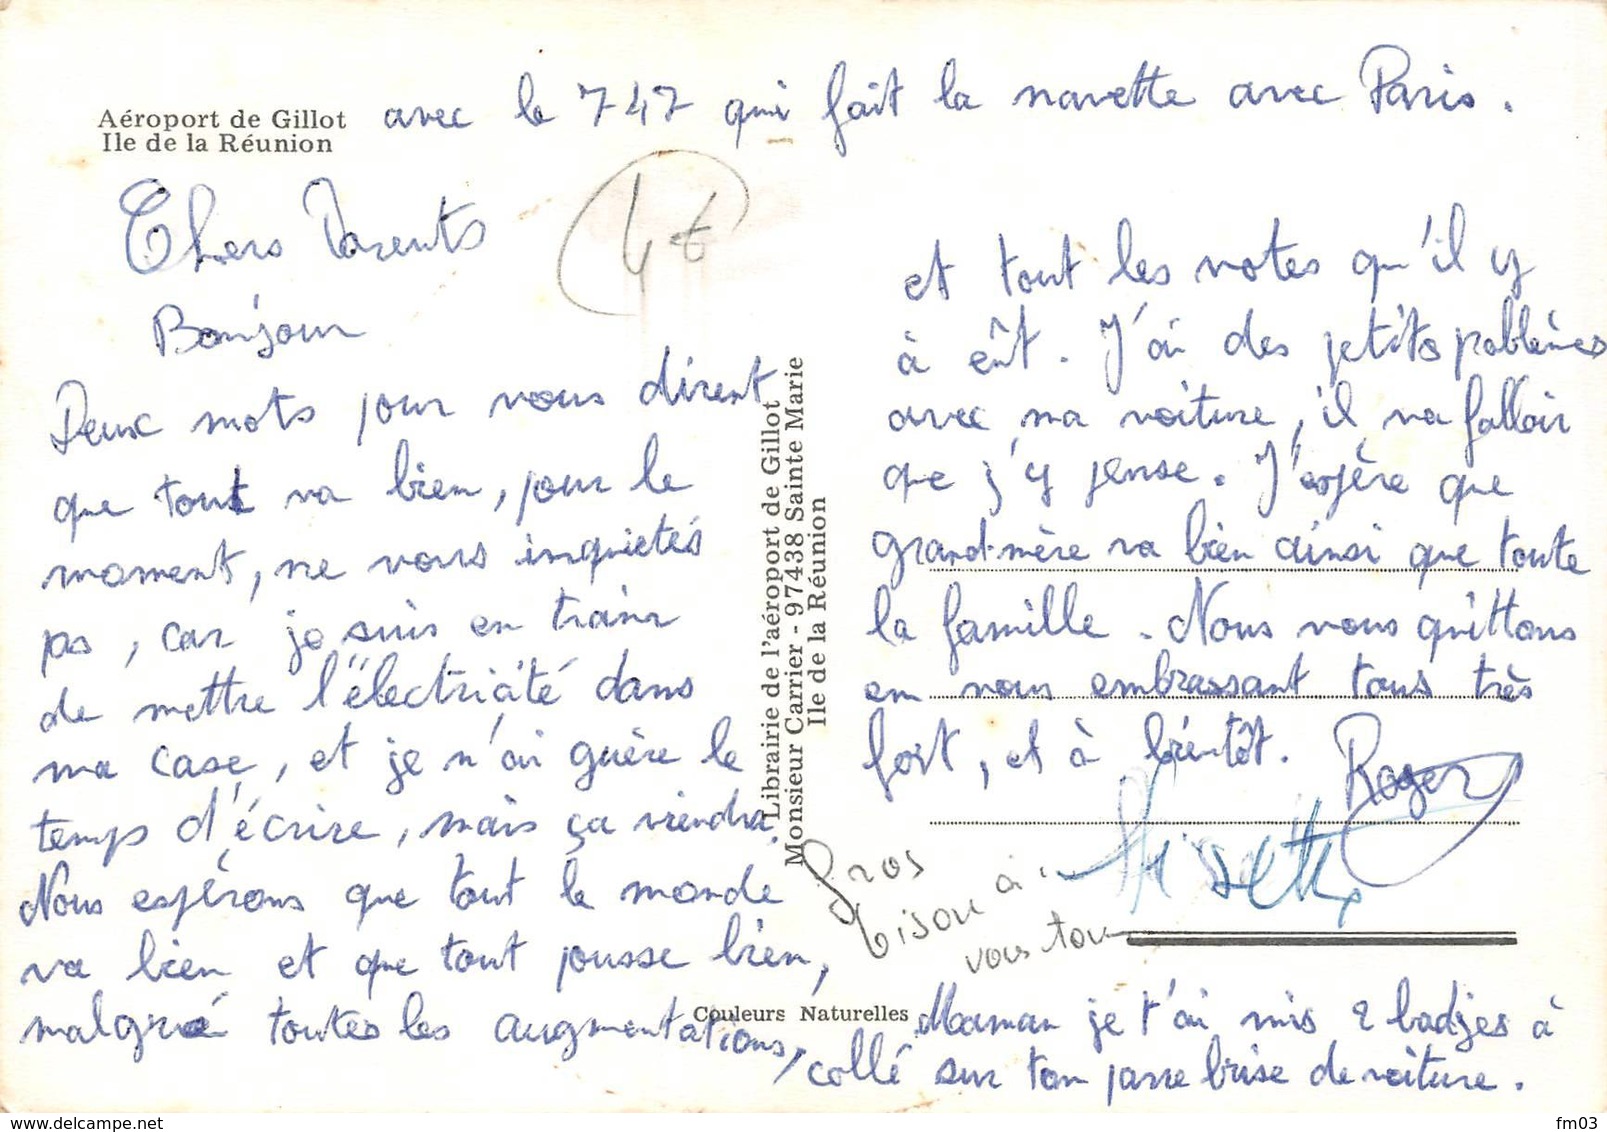 Aéroport de Gillot
Ile de la Réunion
avec le 747 qui fait la navette avec Paris.
4€
Chers Parents
Bonjour
Deux mots pour vous dirent
que tout va bien, pour le
moment, ne vous inquietés
pas, car je suis en train
de mettre l'électricité dans
ma case, et je n'ai guère le
temps d'écrire, mais ça viendra.
Nous espérons que tout le monde
va bien et que tout pousse bien,
malgré toutes les augmentations,
Librairie de l'aéroport de Gillot
Monsieur Carrier - 97438 Sainte Marie
Ile de la Réunion
et tout les votes qu'il y
à eût. J'ai des petits poblèmes
avec ma voiture, il va falloir
que j'y pense. J'espère que
grand-mère va bien ainsi que toute
la famille. Nous vous quittons
em vous embrassant tous très
fort, et à bientôt. Roger
Gros
bisou à
vous tous
Couleurs Naturelles
Maman je t'ai mis 2 badjes à
collé sur ton parre brise de voiture.
fm03